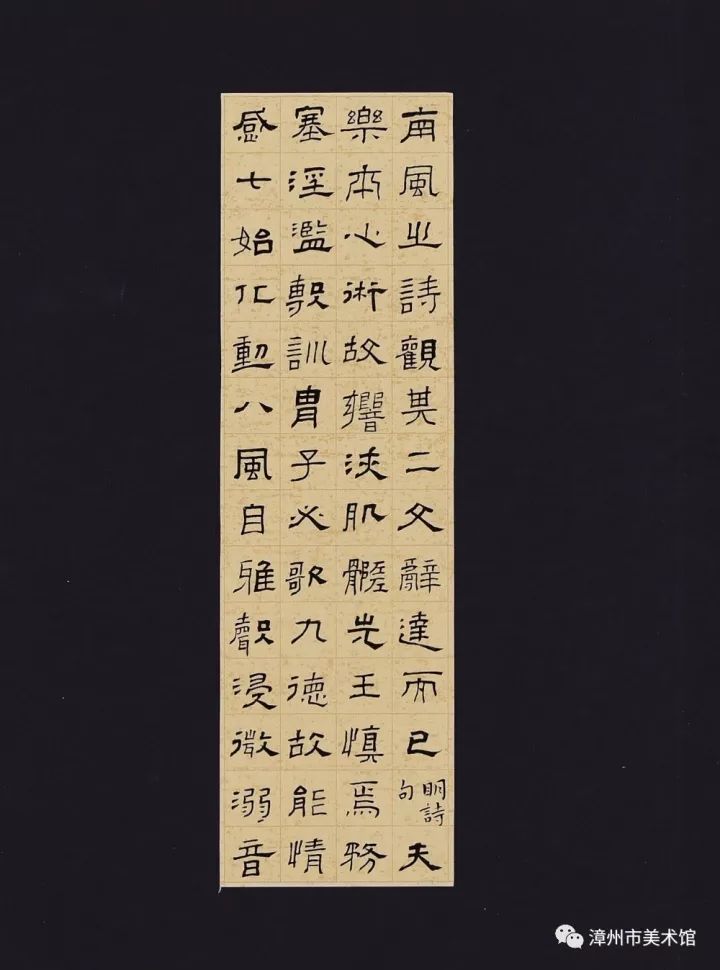 南風之詩觀其二文辭達而已明詩句夫
樂本心術故響浹肌髓先王慎焉務
塞淫濫敷訓胄子必歌九德故能情
感七始化動八風自雅聲浸微溺音
漳州市美术馆